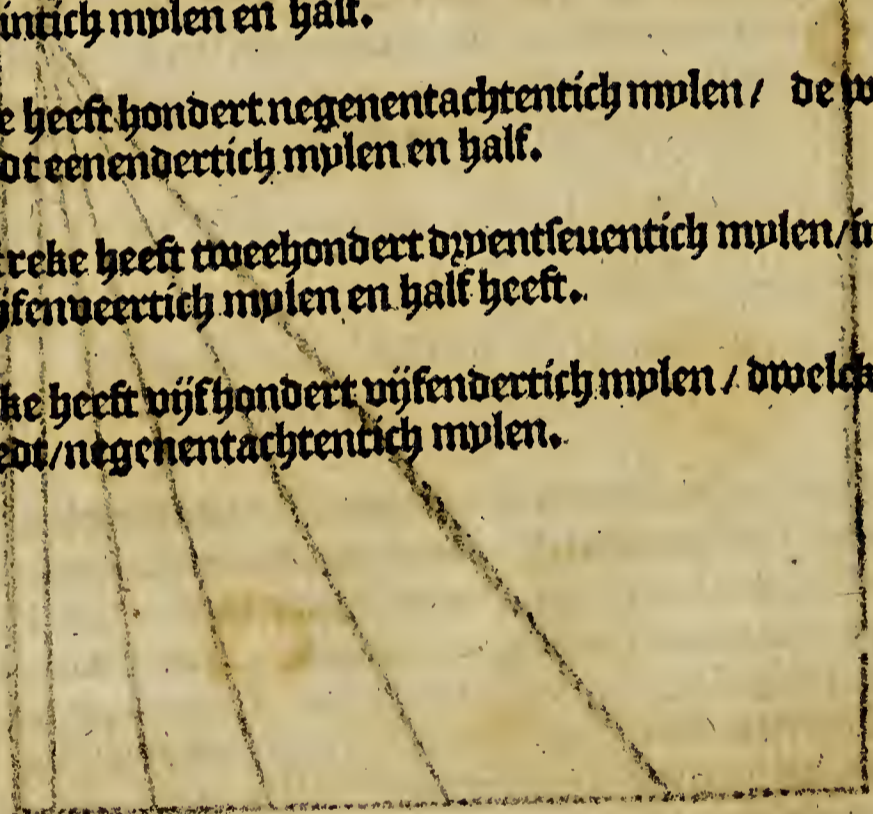 intich mylen en half.
e heeft hondert negenentachtentich mylen / de w
dt eenendertich mylen en half.
treke heeft tweehondert dryentseuentich mylen/in
ijfenveertich mylen en half heeft.
ke heeft vijfhondert vijfendertich mylen / dwelck
edt/negenentachtentich mylen.